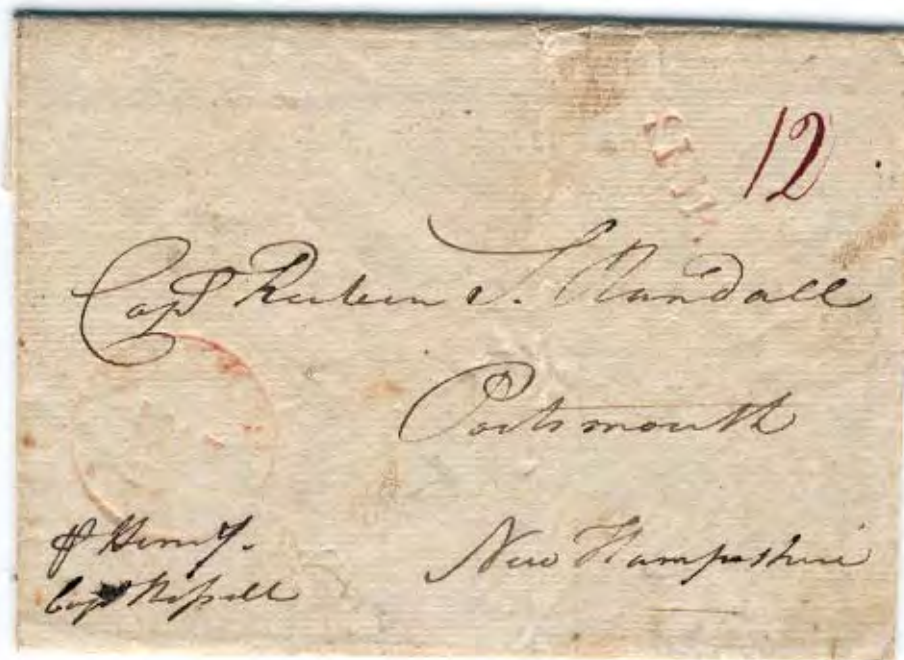 SHIP
12
Capt Reuben S. Randall
Portsmouth
New Hampshire
p Henry.
Capt